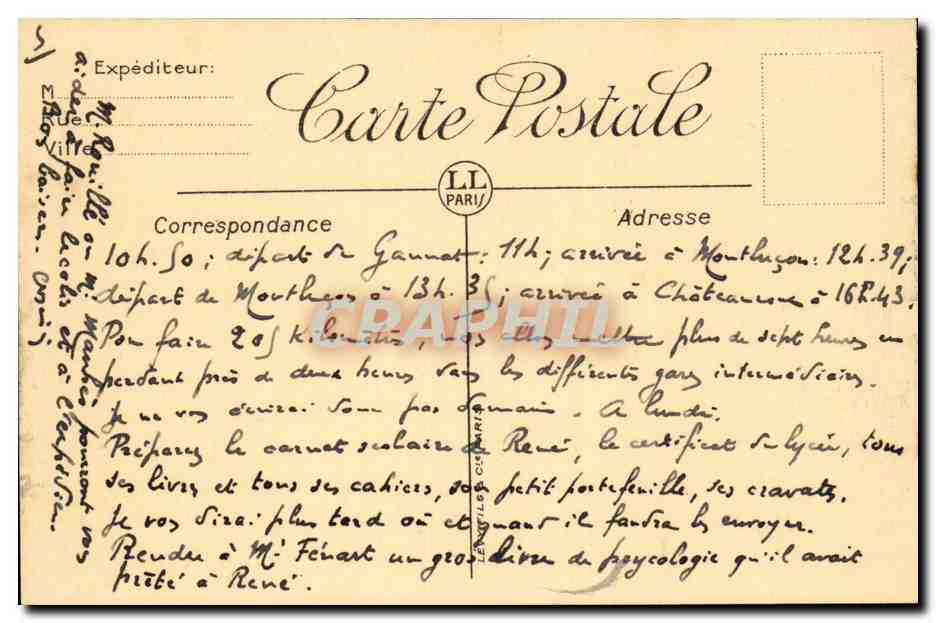 Expéditeur:
Rue
Ville
Carte Postale
LL
PARIS
Correspondance
Adresse
10h.50; départ de Gannat: 11h; arrivée à Montluçon: 12h.39;
départ de Montluçon à 13h.35; arrivée à Châteauroux à 16h.43.
Pour faire 205 kilomètres, vos allez mettre plus de sept heures en
perdant près de deux heures dans les différentes gares intermédiaires.
Je ne vos écrirai donc pas demain. A lundi.
Préparez le carnet scolaire de René, le certificat du lycée, tous
ses livres et tous ses cahiers, son petit portefeuille, ses cravates.
Je vos dirai plus tard où et quand il faudra les envoyer.
Rendre à Mr Fénart un gros livre de psycologie qu'il avait
prêté à René.
M. Rouillé ou M. Maurice pourront vos
aider à faire le colis et à l'expédier.
Gros baisers.
CRAPHIL
LEVY FILS & Cie PARIS